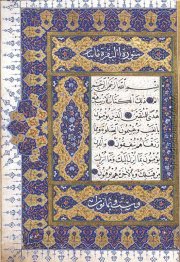 سورة البقرة مائتان
بسم الله الرحمن الرحيم
الم ذلك الكتاب لا ريب
فيه هدى للمتقين الذين
يؤمنون بالغيب ويقيمون الصلوة ومما
رزقناهم ينفقون والذين
يؤمنون بما أنزل إليك وما أنزل
من قبلك وبالآخرة هم يوقنون
وست وثمانون